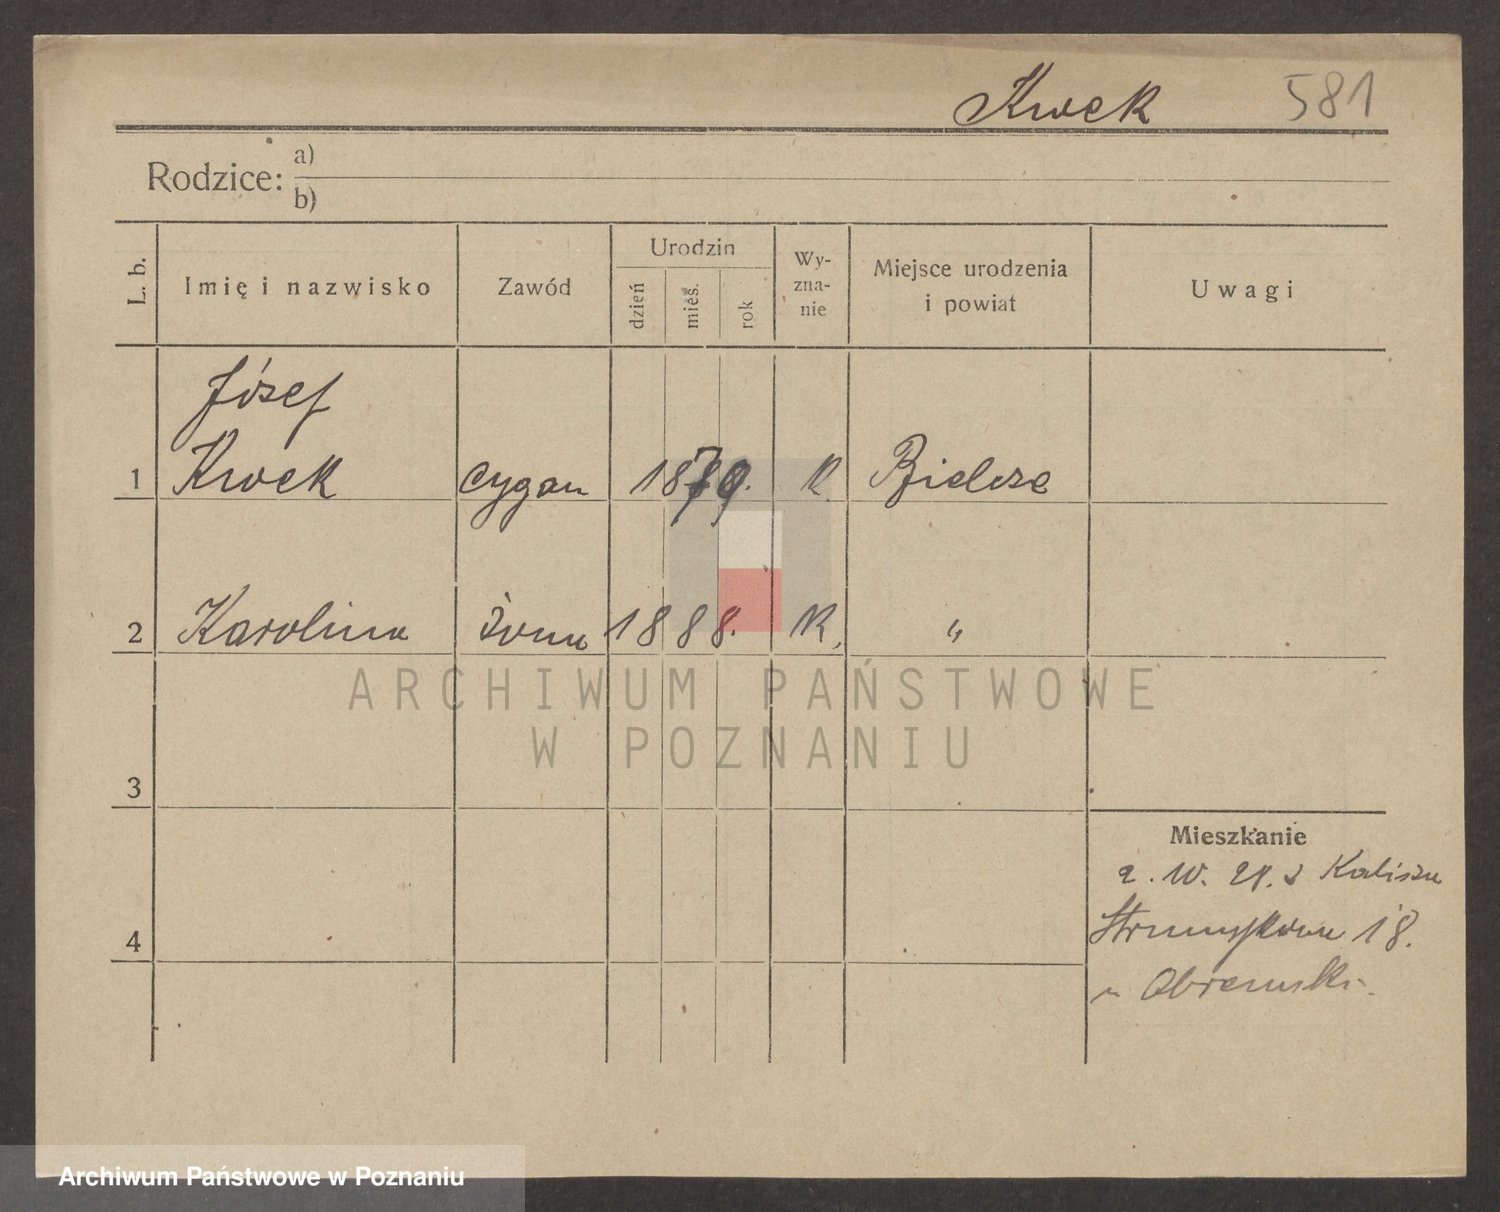 Kwek 581
Rodzice: a)
b)
L. b. Imię i nazwisko Zawód Urodzin dzień mieś. rok Wyznanie Miejsce urodzenia i powiat Uwagi
Józef
1 Kwek cygan 1879. K. Bielcze
2 Karolina żona 1888. K. "
ARCHIWUM PAŃSTWOWE
W POZNANIU
3
Mieszkanie
2. IV. 21. z Kalisza
4
18.
Archiwum Państwowe w Poznaniu